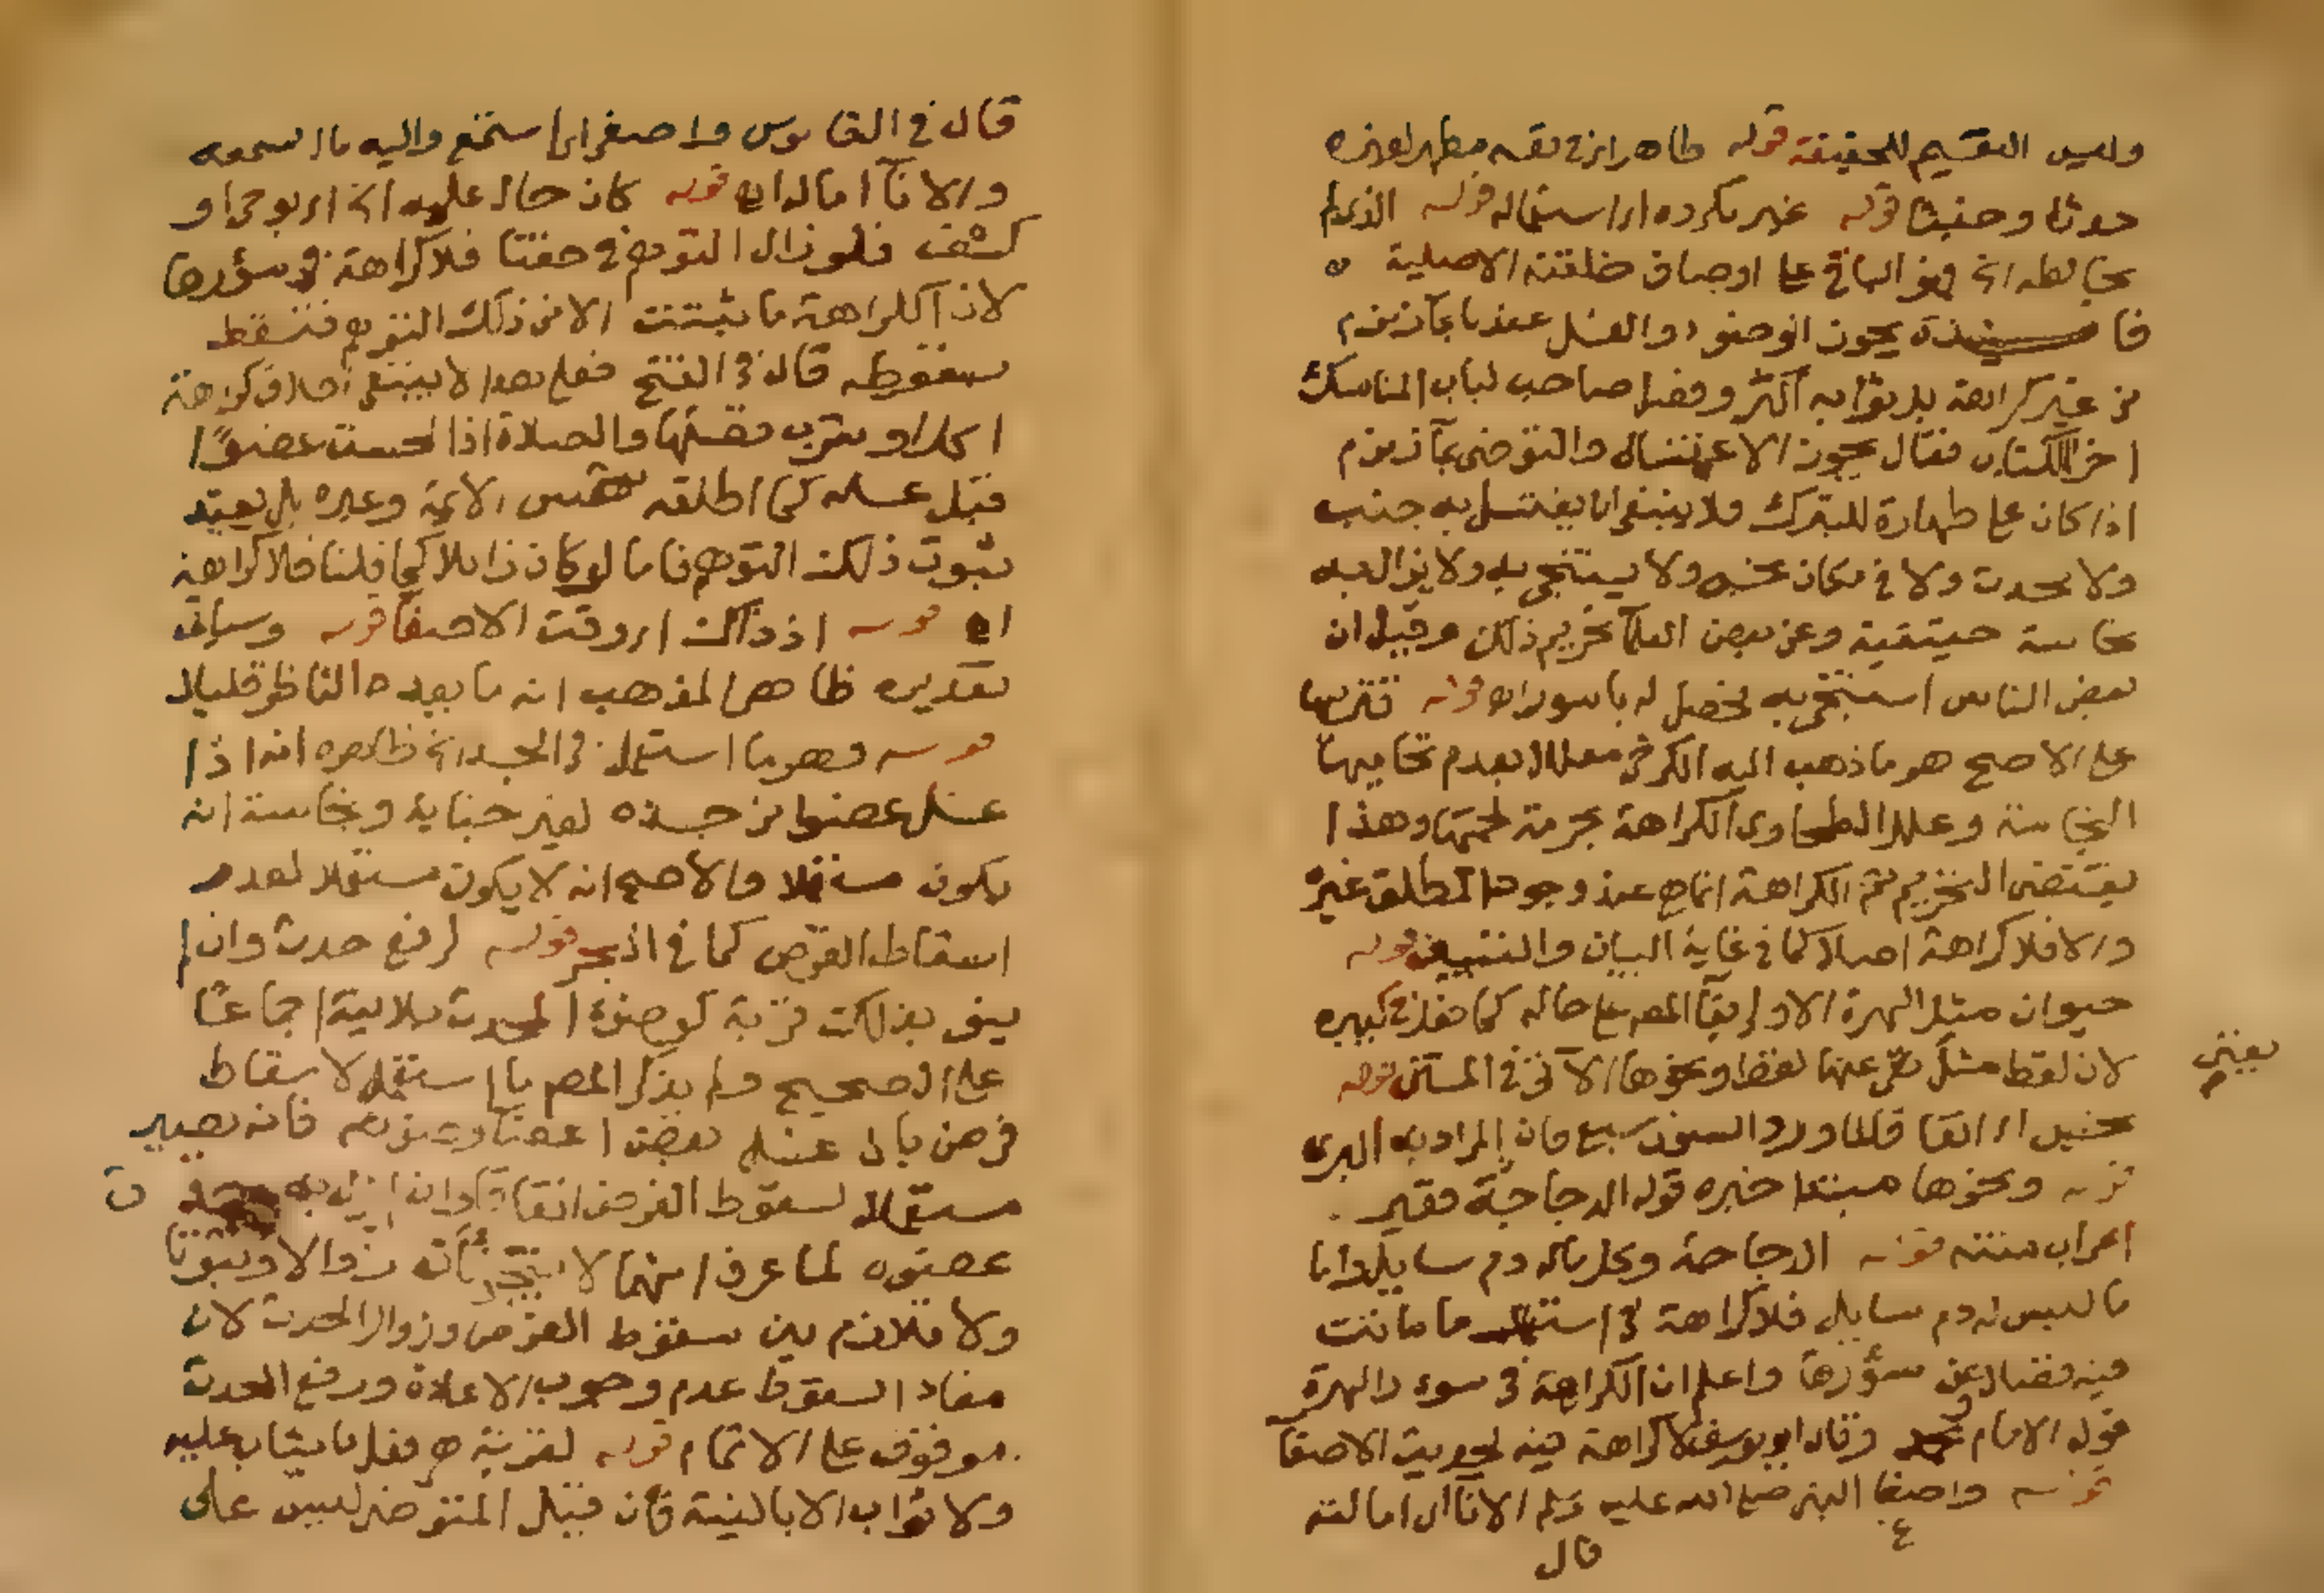 وليس التقسيم للحقيقة قوله طاهر اي في نفسه مطهر لغيره
حدثا وخبثا قوله غير مكروه اي استعماله قوله الذي لم
يخالطه الخ فهو الباقي على اوصاف خلقته الاصلية ه
فا يجوز الوضوء والغسل عندنا بماء زمزم
من غير كراهة بل ثوابه اكثر وفصل صاحب لباب المناسك
اخر الكتاب فقال يجوز الاغتسال والتوضي بماء زمزم
اذا كان على طهارة للتبرك فلا ينبغي ان يغتسل به جنب
ولا محدث ولا في مكان نجس ولا يستنجي به ولا يزال به
نجاسة حقيقية وعن بعض العلماء تحريم ذلك وقيل ان
بعض الناس استنجى به فحصل له باسور اه قوله
على الاصح هو ما ذهب اليه الكرخي معللا بعدم تحاميها
النجاسة وعلل الطحاوي الكراهة بحرمة لحمها وهذا
يقتضي التحريم ثم الكراهة انما هي عند وجود المطلق غيره
والا فلا كراهة اصلا كما في غاية البيان والتبيين قوله
حيوان مثل الهرة الاولى بقاء المص على حاله كما فعل في كبيره
لان لفظ مثل عنها لفظ ونحوها الآتي في المتن قوله
يعني
نجس اي اتفاقا لما ورد السنور سبع فان المراد به البري
قوله ونحوها مبتدا خبره قوله الدجاجة فغير
اعراب متنه قوله الدجاجة وكل ماله دم سايل واما
ما ليس له دم سايل فلا كراهة في استعمال ما ماتت
فيه فضلا عن سؤرها واعلم ان الكراهة في سوء رالهرة
قول الامام ومحمد وقال ابو يوسف لا كراهة فيه لحديث الاصغاء
قوله واصغا النبي صلى الله عليه وسلم الاناء اي امالته
قال
قال في القاموس واصغى استمع واليه مال بسمعه
والاناء اماله اه قوله كان حال عليه الخ اي بوحي او
كشف فلو زال التوهم في حقنا فلا كراهة في سؤرها
لان الكراهة ما ثبتت الا من ذلك التوهم فتسقط
بسقوطه قال في الفتح فعلى هذا لا ينبغي اطلاق كراهة
اكل او شرب فضلها والصلاة اذا لحست عضوا
قبل غسله كما اطلقه شمس الائمة وغيره بل يقيد
بثبوت ذلك التوهم فاما لو كان زائلا كما قلنا فلا كراهة
اه قوله اذ ذاك اي وقت الاصغا قوله وسياتي
تقديره ظاهر المذهب انه ما يعده الناظر قليلا
قوله وهو ما استعمل في الجسد الخ ظاهره انه اذا
غسل عضوا من جسده لغير جنابة ونجاسة انه
يكون مستعملا والاصح انه لا يكون مستعملا لعدم
اسقاط الفرض كما في البحر قوله لرفع حدث وان لم
ينو بذلك قربة كوضوء المحدث بلا نية اجماعا
على الصحيح ولم يذكر المص ما استعمل لاسقاط
فرض بان غسل بعض اعضاء وضوئه فانه يصير
مستعملا لسقوط الفرض اتفاقا وان لم يزل به حدث
عضوه لما عرف انهما لا يتجزأن زوالا وثبوتا
ولا تلازم بين سقوط الفرض وزوال الحدث لان
مفاد السقوط عدم وجوب الاعادة ورفع الحدث
موقوف على الاتمام قوله لقربة هي فعل ما يثاب عليه
ولا ثواب الا بالنية فان قيل المتوضي ليس على